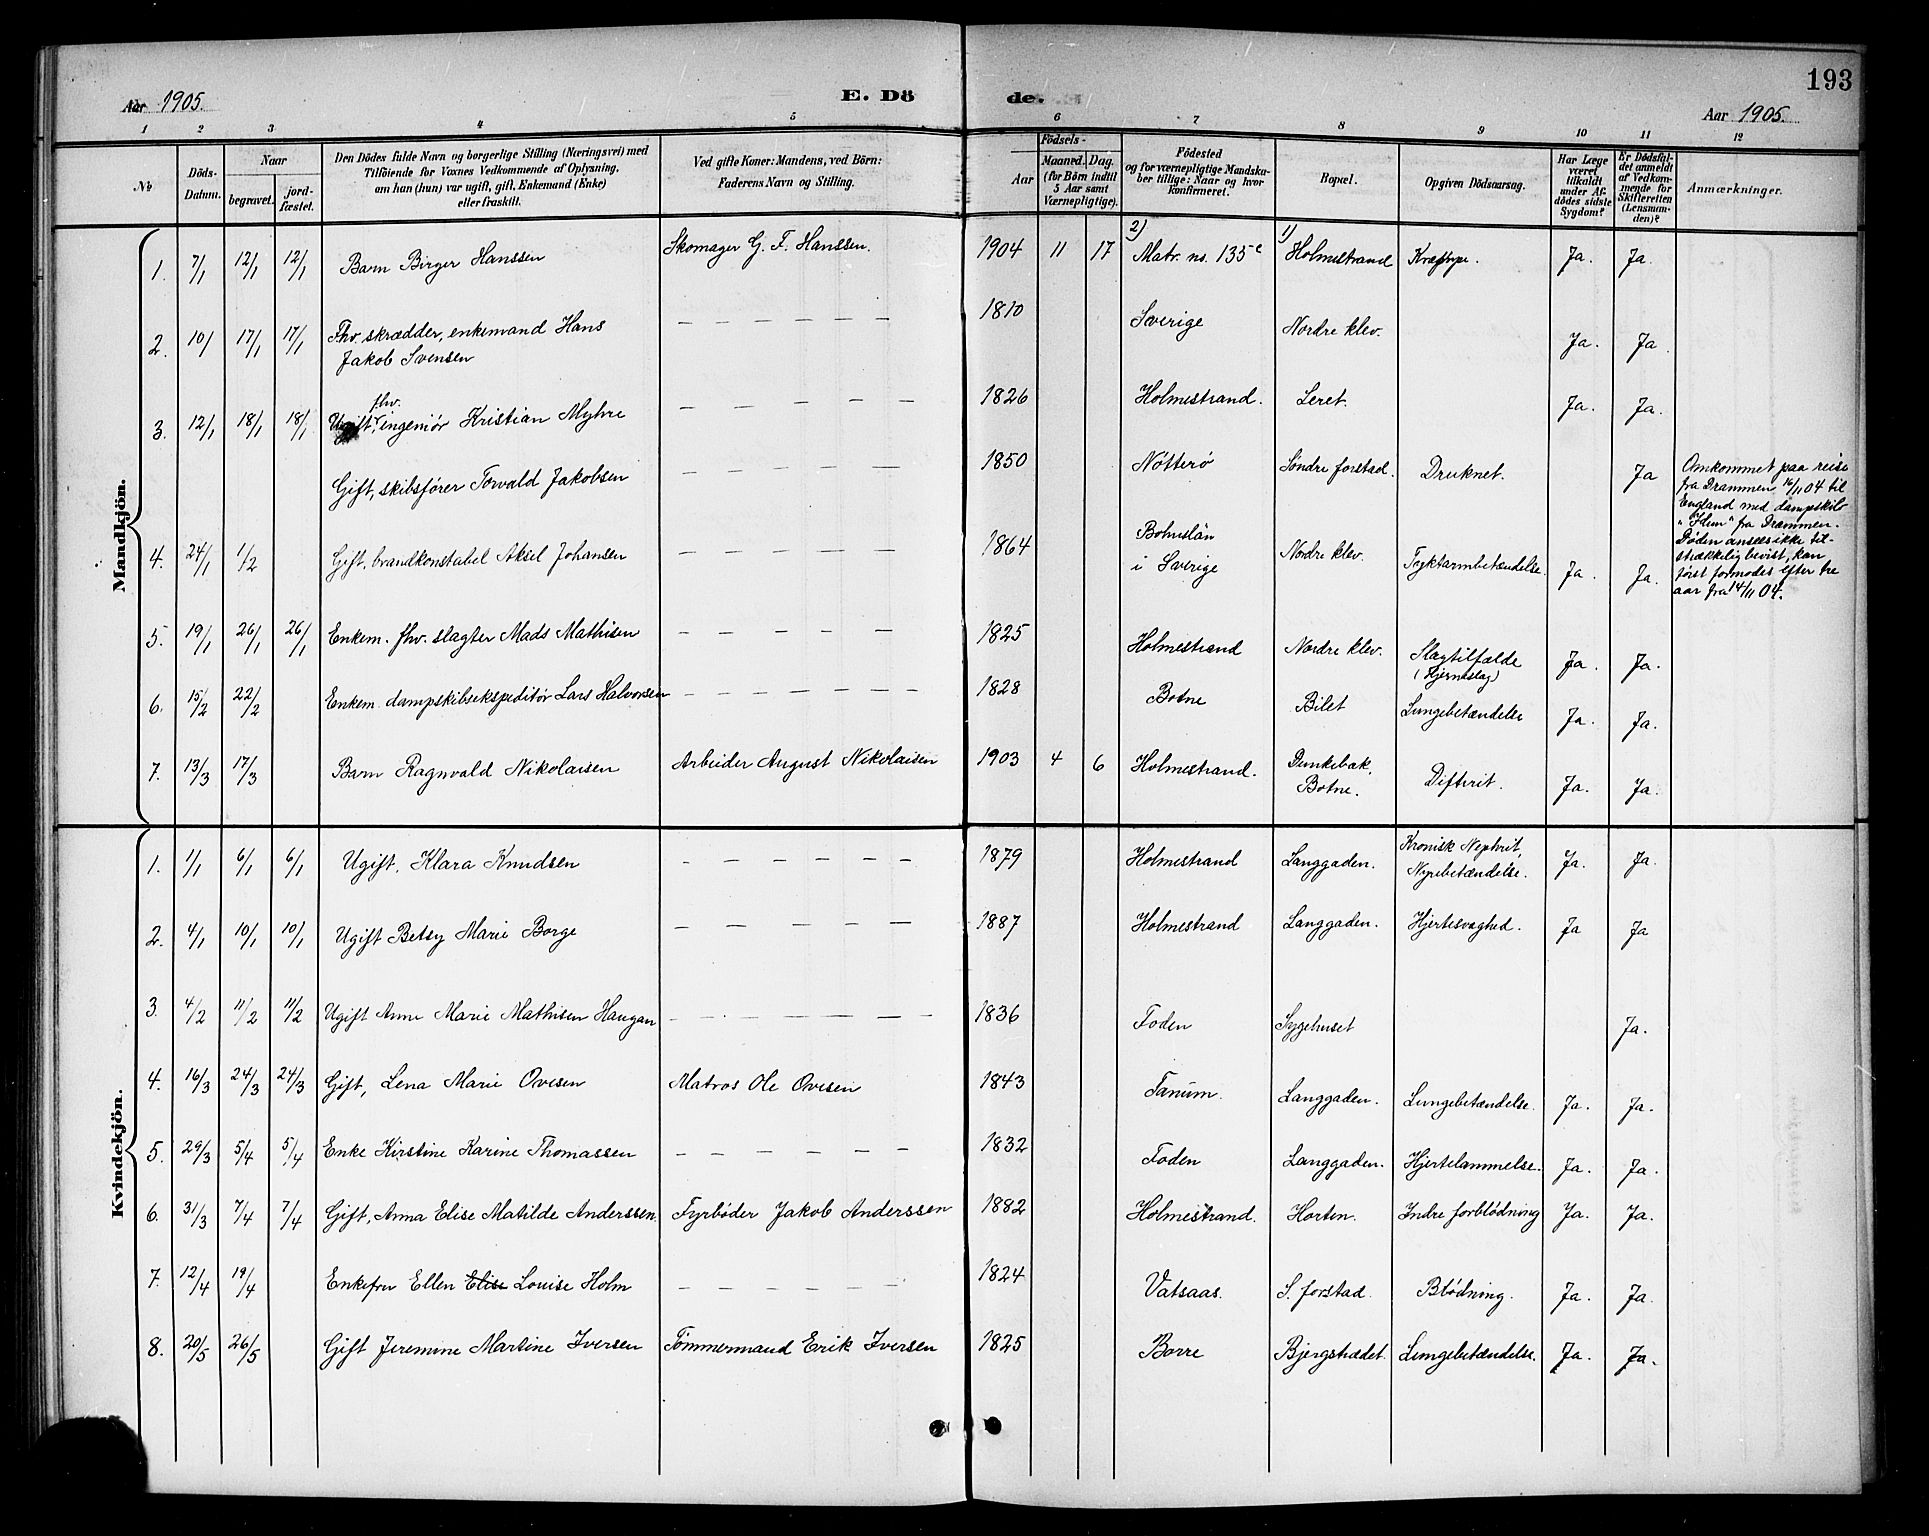 193
Aar 1905.
E. Dö
de.
Aar 1905.
1 2 3 4 5 6 7 8 9 10 11 12
No
Döds-
Datum.
Naar
begravet.
jord-
fæstet.
Den Dödes fulde Navn og borgerlige Stilling (Næringsvei) med
Tilföiende for Voxnes Vedkommende af Oplysning,
om han (hun) var ugift, gift, Enkemand (Enke)
eller fraskilt.
Ved gifte Koner: Mandens, ved Börn:
Faderens Navn og Stilling.
Födsels-
Aar
Maaned. Dag.
(for Börn indtil
5 Aar samt
Værnepligtige).
Födested
og for værnepligtige Mandska-
ber tillige: Naar og hvor
konfirmeret.
Bopæl.
Opgiven Dödsaarsag.
Har Læge
været
tilkaldt
under Af-
dödes sidste
Sygdom?
Er Dödsfal-
det anmeldt
af Vedkom-
mende for
Skifteretten
(Lensman-
den)?
Anmærkninger.
Mandkjön.
1. 7/1 12/1 12/1 Barn Birger Hanssen Skomager G. F. Hanssen. 1904 11 17 2) Matr. no. 135c 1) Holmestrand Ja. Ja.
2. 10/ 17/1 17/1 Fhv. skrædder, enkemand Hans — — — — — — 1810 Sverige Nordre klev. Ja. Ja.
Jakob Svensen
fhv.
3. 12/1 18/1 18/1 Ugift, ingeniør Kristian Myhre — — — — — 1826 Holmestrand. Leret. Ja. Ja.
Gift, skibsfører Torvald Jakobsen — — — — — 1850 Nøtterø Søndre forstad. Druknet. Ja
Omkommet paa reise
fra Drammen 16/11 04 til
England med dampskib
fra Drammen.
Døden ansees ikke til-
strækkelig bevist, kan
først formodes efter tre
aar fra 14/11 04.
4. 24/1 1/2 Gift, brandkonstabel Aksel Johansen 1864 Bohuslän
i Sverige Nordre klev. Tyktarmbetændelse. Ja. Ja.
5. 19/1 26/1 26/1 Enkem. fhv. slagter Mads Mathisen — — — — — 1825 Holmestrand Nordre klev. Slagtilfælde
(Hjerneslag) Ja. Ja.
6. 15/2 22/2 Enkem. dampskibsekspeditør Lars Halvorsen — — — — — — 1828 Botne Bilet Lungebetændelse Ja. Ja.
7. 13/3 17/3 Barn Ragnvald Nikolaisen Arbeider August Nikolaisen 1903 4 6 Holmestrand. Dunkebæk,
Botne. Difterit. Ja. Ja.
Kvindekjön.
1. 1/1 6/1 6/1 Ugift, Klara Knudsen — — — — — — 1879 Holmestrand Langgaden. Kronisk Nephrit,
Nyrebetændelse. Ja. Ja.
2. 4/1 10/1 10/1 Ugift Betsy Marie Borge — — — — — 1887 Holmestrand Langgaden. Hjertesvaghed. Ja Ja
3. 4/2 11/2 11/2 Ugift Anne Marie Mathisen Haugan — — — — — — — 1836 Foden Sygehuset Ja.
4. 16/3 24/3 24/3 Gift, Lena Marie Ovesen Matros Ole Ovesen 1843 Tanum. Langgaden. Lungebetændelse. Ja. Ja.
5. 29/3 5/4 5/4 Enke Kirstine Karine Thomassen — — — — — — 1832 Foden Langgaden. Hjertelammelse. Ja. Ja.
6. 31/3 7/4 7/4 Gift, Anna Elise Matilde Anderssen Fyrbøder Jakob Anderssen 1882 Holmestrand. Horten. Indre forblødning Ja. Ja.
7. 12/4 19/4 Enkefru Ellen Elise Louise Holm — — — — — 1824 Vatsaas. S. forstad Blødning. Ja. Ja.
8. 20/5 26/5 Gift Jeremine Martine Iversen Tømmermand Erik Iversen 1825 Borre Bjergstrædet Lungebetændelse. Ja. Ja.